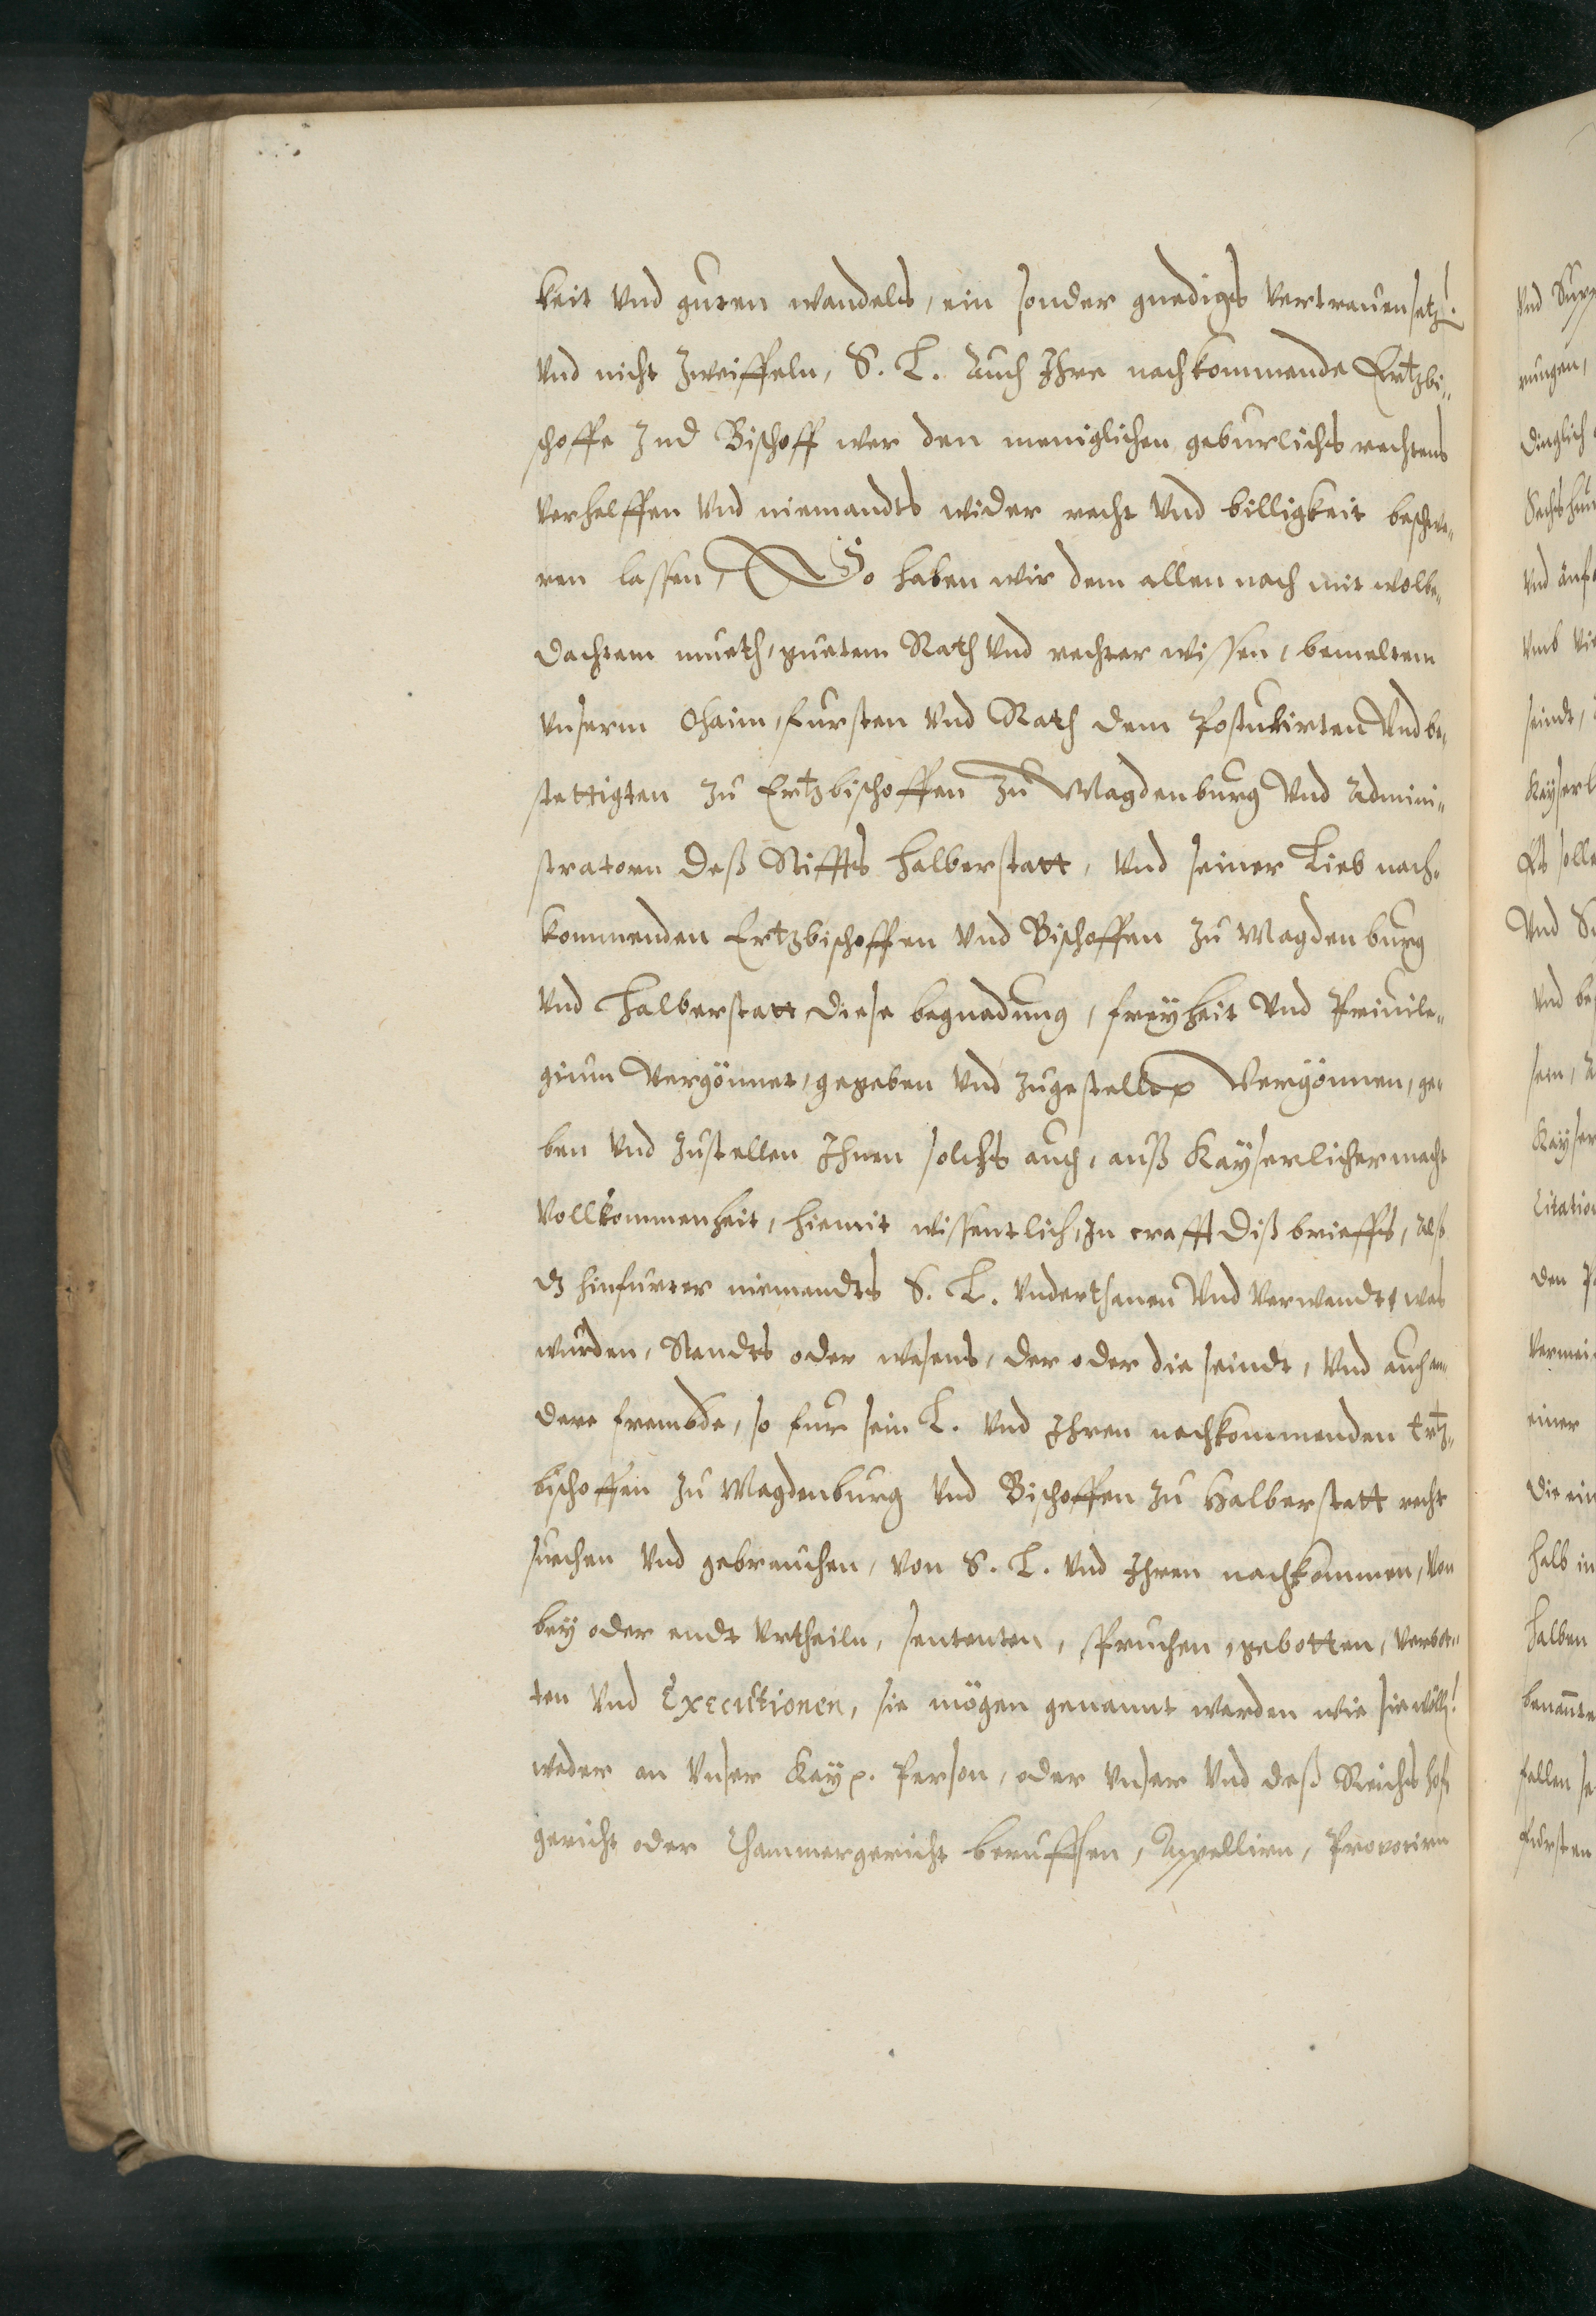 keit vnd guten wandels, ein sonder gnedigs vertrauen setz.
vnd nicht zweiffeln, S. L. Auch Ihre nachkommende Ertzbi-
schoffe Ind Bischoff wer den meniglichen geburlichs rechtens
verhelffen vnd niemandts wider recht vnd billigkeit beschwe-
ren lassen, So haben wir dem allen nach mit wolbe-
dachtem mueth, guetem Rath vnd rechter wissen, bemeltem
vnserm Ohaim, fursten vnd Rath dem Postulirten Vnd be-
stettigten zu Ertzbischoffen zu Magdenburg vnd Admini-
stratorn deß Stiffts Halberstatt, vnd seiner Lieb nach-
kommenden Ertzbischoffen vnd Bischoffen zu Magdenburg
vnd Halberstatt diese begnadung, freyheit vnd Priuile-
gium vergönnet, gegeben vnd zugestellt Vergönnen, ge-
ben vnd zustellen Ihnen solchs auch, auß Kayserlicher macht
vollkommenheit, hiemit wissentlich, In crafft diß brieffs, Alß
dz hinfurter niemandts S. L. vnderthanen Vnd verwandt, was
wurden, Standts oder wesens, der oder die seindt, vnd auch an-
dere frembde, so fur sein L. vnd Ihren nachkommenden Ertz-
bischoffen zu Magdenburg vnd Bischoffen zu Halberstatt recht
suechen vnd gebrauchen, von S. L. vnd Ihren nachkommen, von
bey oder endt vrtheiln, sententen, spruchen, gebotten, verbot-
ten vnd Executionen, sie mögen genannt werden wie sie wölln
weder an vnser Kay. Person, oder vnser vnd deß Reichs hof
gericht oder Chammergericht beruffen, Appellirn, Prouocirn